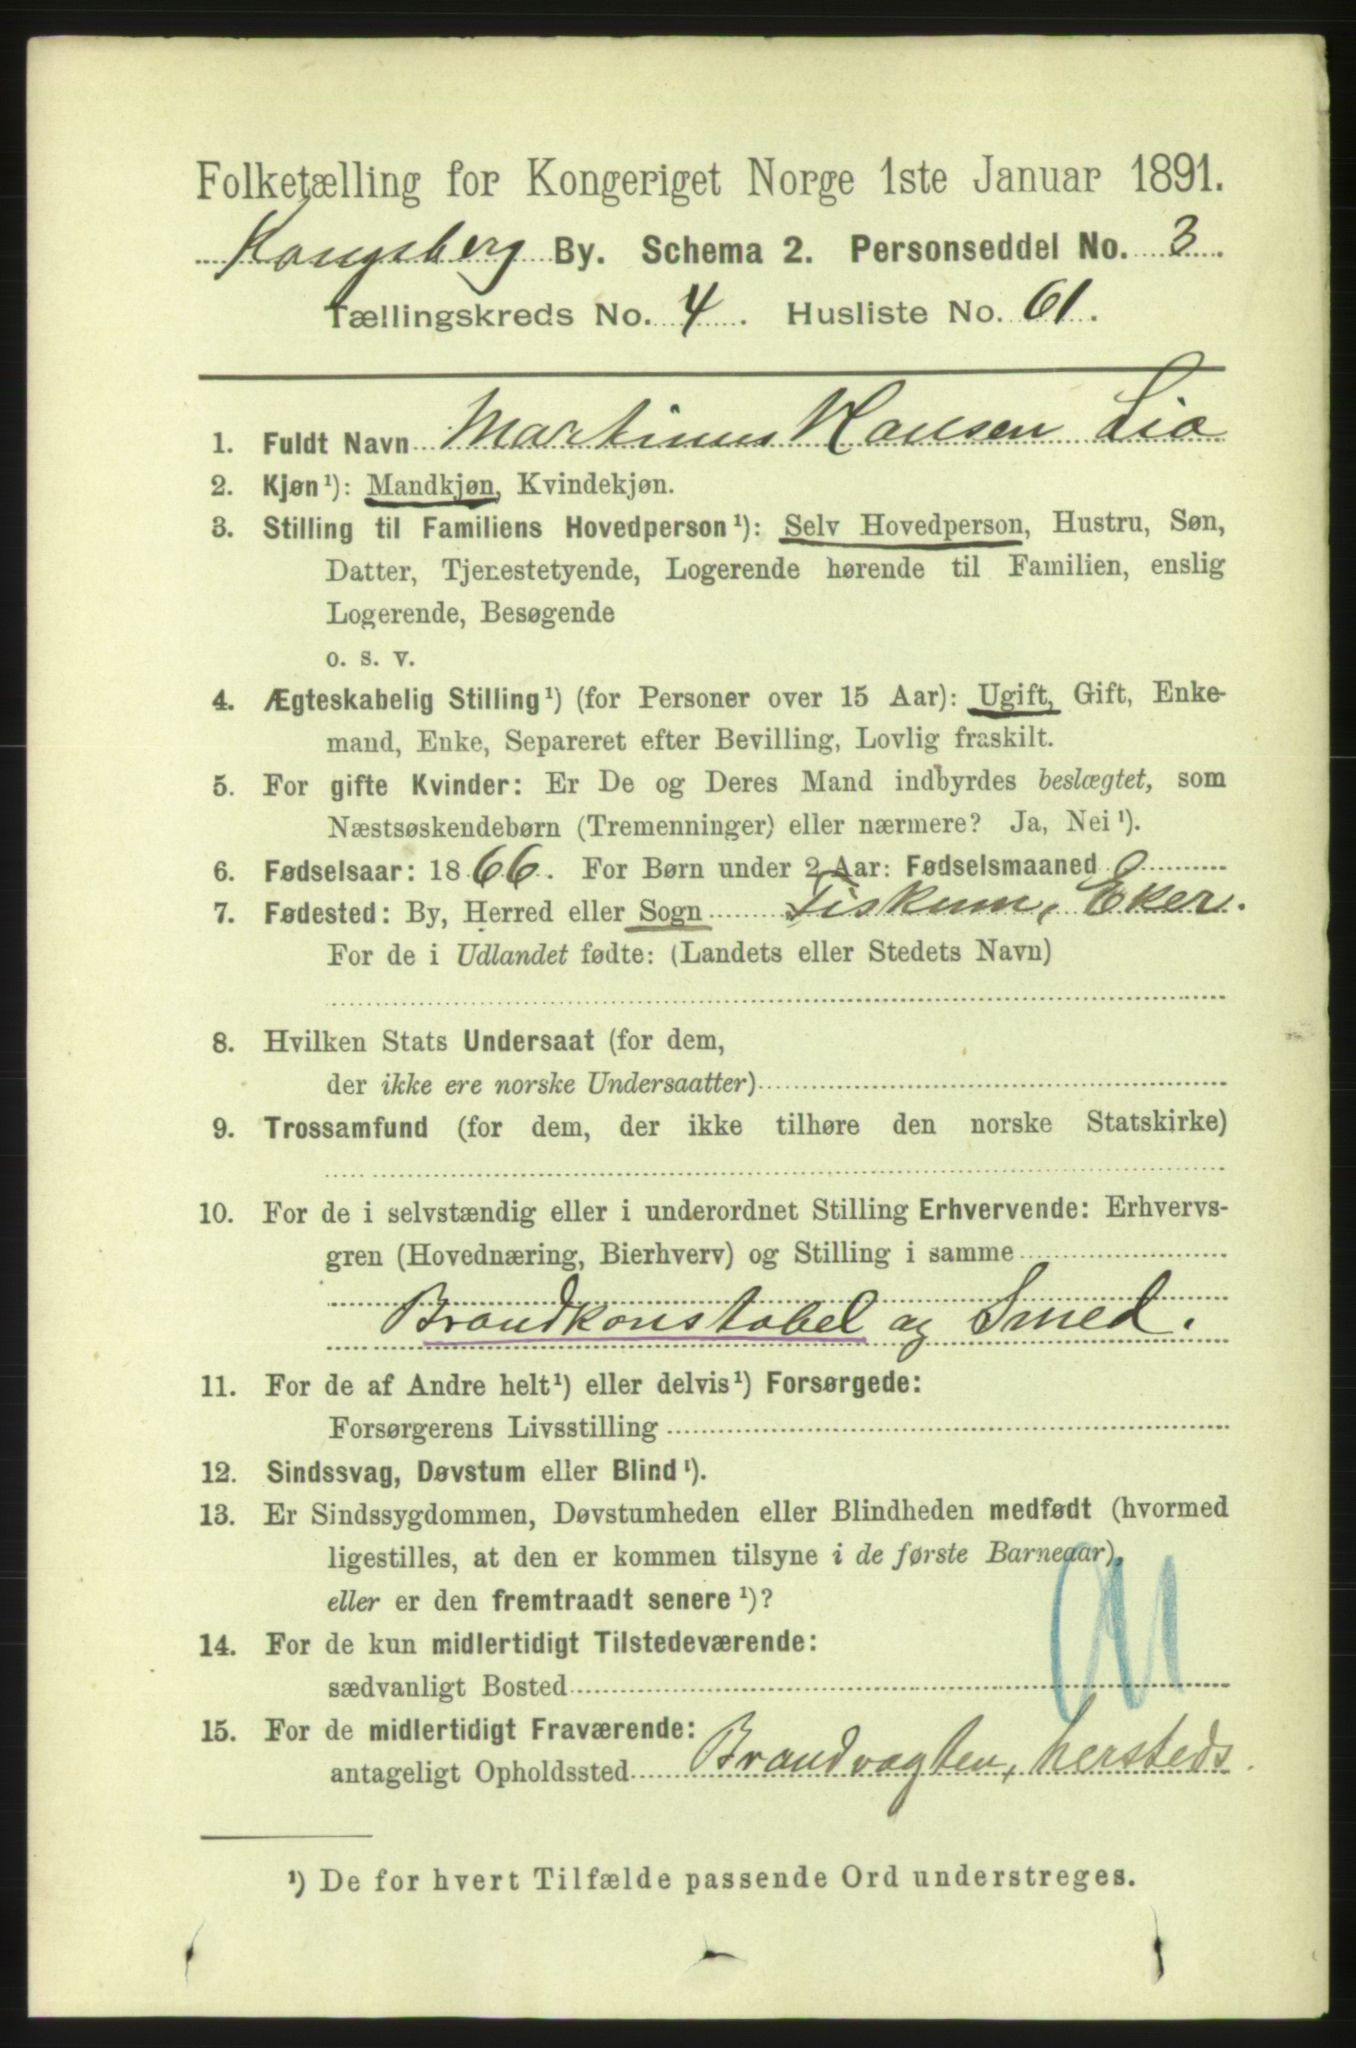 Folketælling for Kongeriget Norge 1ste Januar 1891.
Kongsberg By. Schema 2. Personseddel No. 3.
Tællingskreds No. 4. Husliste No. 61.
1. Fuldt Navn Martinus Hansen Lia
2. Kjøn¹): Mandkjøn, Kvindekjøn.
3. Stilling til Familiens Hovedperson¹): Selv Hovedperson, Hustru, Søn,
Datter, Tjenestetyende, Logerende hørende til Familien, enslig
Logerende, Besøgende
o. s. v.
4. Ægteskabelig Stilling¹) (for Personer over 15 Aar): Ugift, Gift, Enke-
mand, Enke, Separeret efter Bevilling, Lovlig fraskilt.
5. For gifte Kvinder: Er De og Deres Mand indbyrdes beslægtet, som
Næstsøskendebørn (Tremenninger) eller nærmere? Ja, Nei¹).
6. Fødselsaar: 1866. For Børn under 2 Aar: Fødselsmaaned
7. Fødested: By, Herred eller Sogn Fiskum, Eker.
For de i Udlandet fødte: (Landets eller Stedets Navn)
8. Hvilken Stats Undersaat (for dem,
der ikke ere norske Undersaatter)
9. Trossamfund (for dem, der ikke tilhøre den norske Statskirke)
10. For de i selvstændig eller i underordnet Stilling Erhvervende: Erhvervs-
gren (Hovednæring, Bierhverv) og Stilling i samme
Brandkonstabel og Smed.
11. For de af Andre helt¹) eller delvis¹) Forsørgede:
Forsørgerens Livsstilling
12. Sindssvag, Døvstum eller Blind¹).
13. Er Sindssygdommen, Døvstumheden eller Blindheden medfødt (hvormed
ligestilles, at den er kommen tilsyne i de første Barneaar),
eller er den fremtraadt senere¹)?
14. For de kun midlertidigt Tilstedeværende:
sædvanligt Bosted
15. For de midlertidigt Fraværende:
antageligt Opholdssted Brandvagten, hersteds.
¹) De for hvert Tilfælde passende Ord understreges.